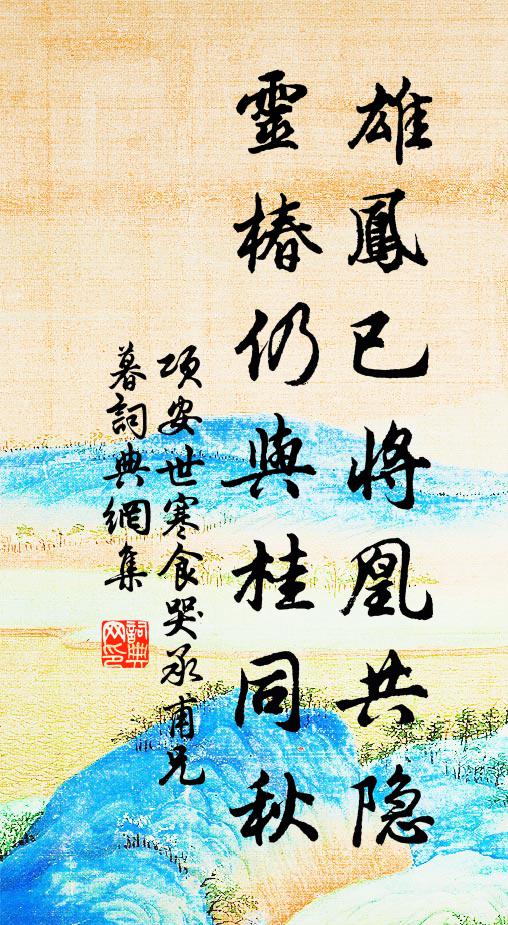 雄鳳已將凰共隐
靈椿仍與桂同秋
项安世寒食哭承甫兄
暮詞典網集
詞典网印